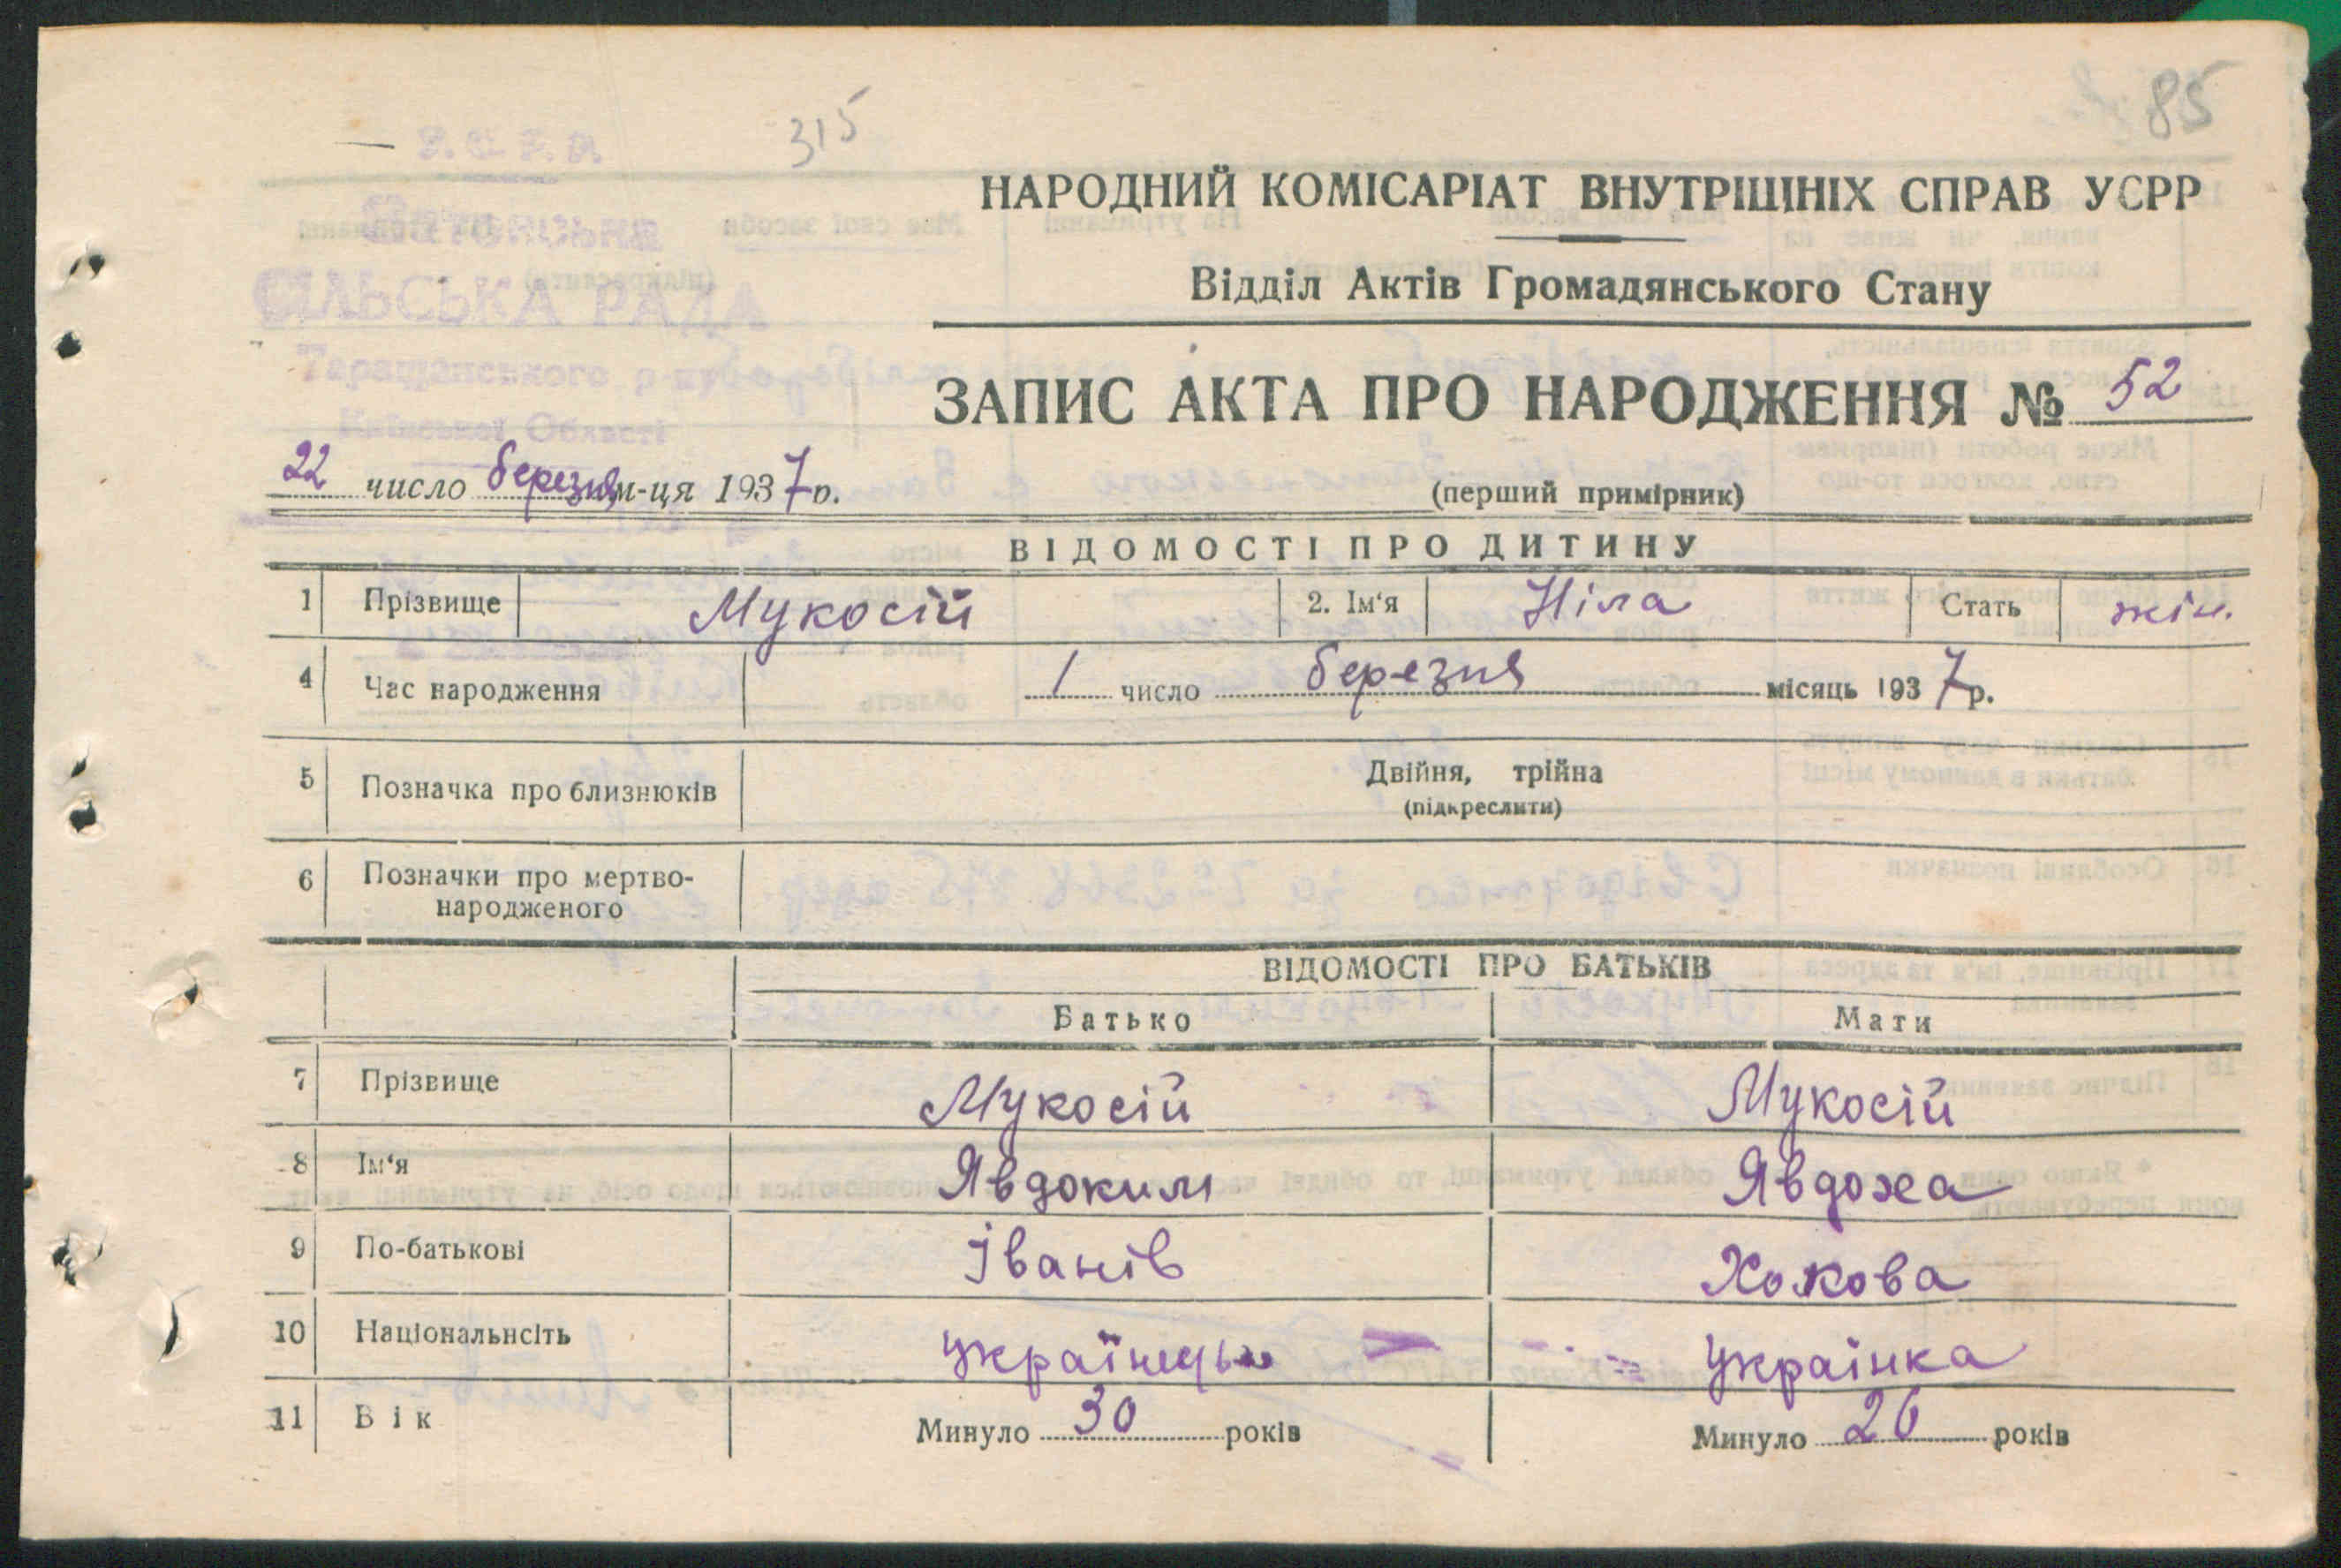 315
85
У.С.Р.Р.
СІЛЬСЬКА РАДА
Таращанського р-ну
Київської Області
НАРОДНИЙ КОМІСАРІАТ ВНУТРІШНІХ СПРАВ УСРР
Відділ Актів Громадянського Стану
ЗАПИС АКТА ПРО НАРОДЖЕННЯ № 52
22 число березня м-ця 1937 р.
(перший примірник)
ВІДОМОСТІ ПРО ДИТИНУ
1 Прізвище Мукосій 2. Ім‘я Ніла Стать жін.
4 Час народження 1 число березня місяць 1937 р.
5 Позначка про близнюків Двійня, трійна
(підкреслити)
6 Позначки про мертво-
народженого
ВІДОМОСТІ ПРО БАТЬКІВ
Батько Мати
7 Прізвище Мукосій Мукосій
8 Ім‘я Явдоким Явдоха
9 По-батькові Іванів Хокова
10 Національнсіть українець українка
11 Вік Минуло 30 років Минуло 26 років